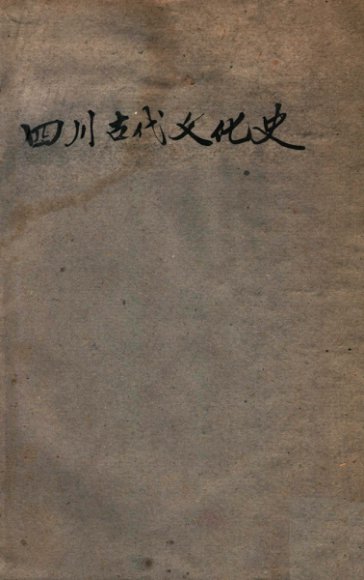 四川古代文化史